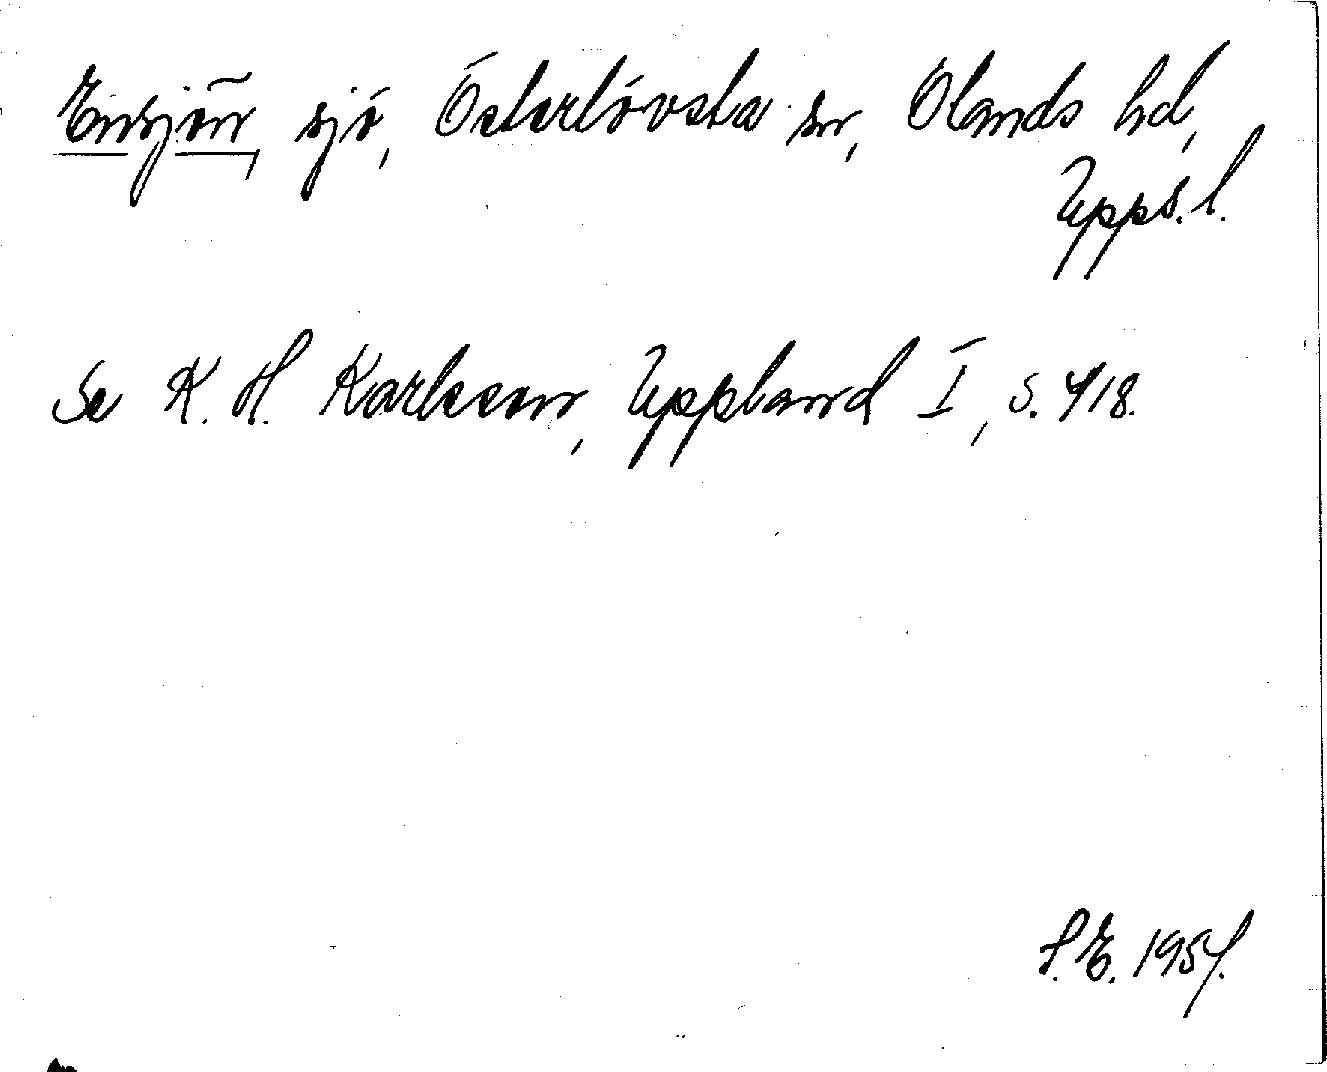 Ensjön, sjö, Österlövsta sn, Olands hd,
Upps. l.
Se K. H. Karlsson, Uppland I, s. 418.
S. E. 1954.